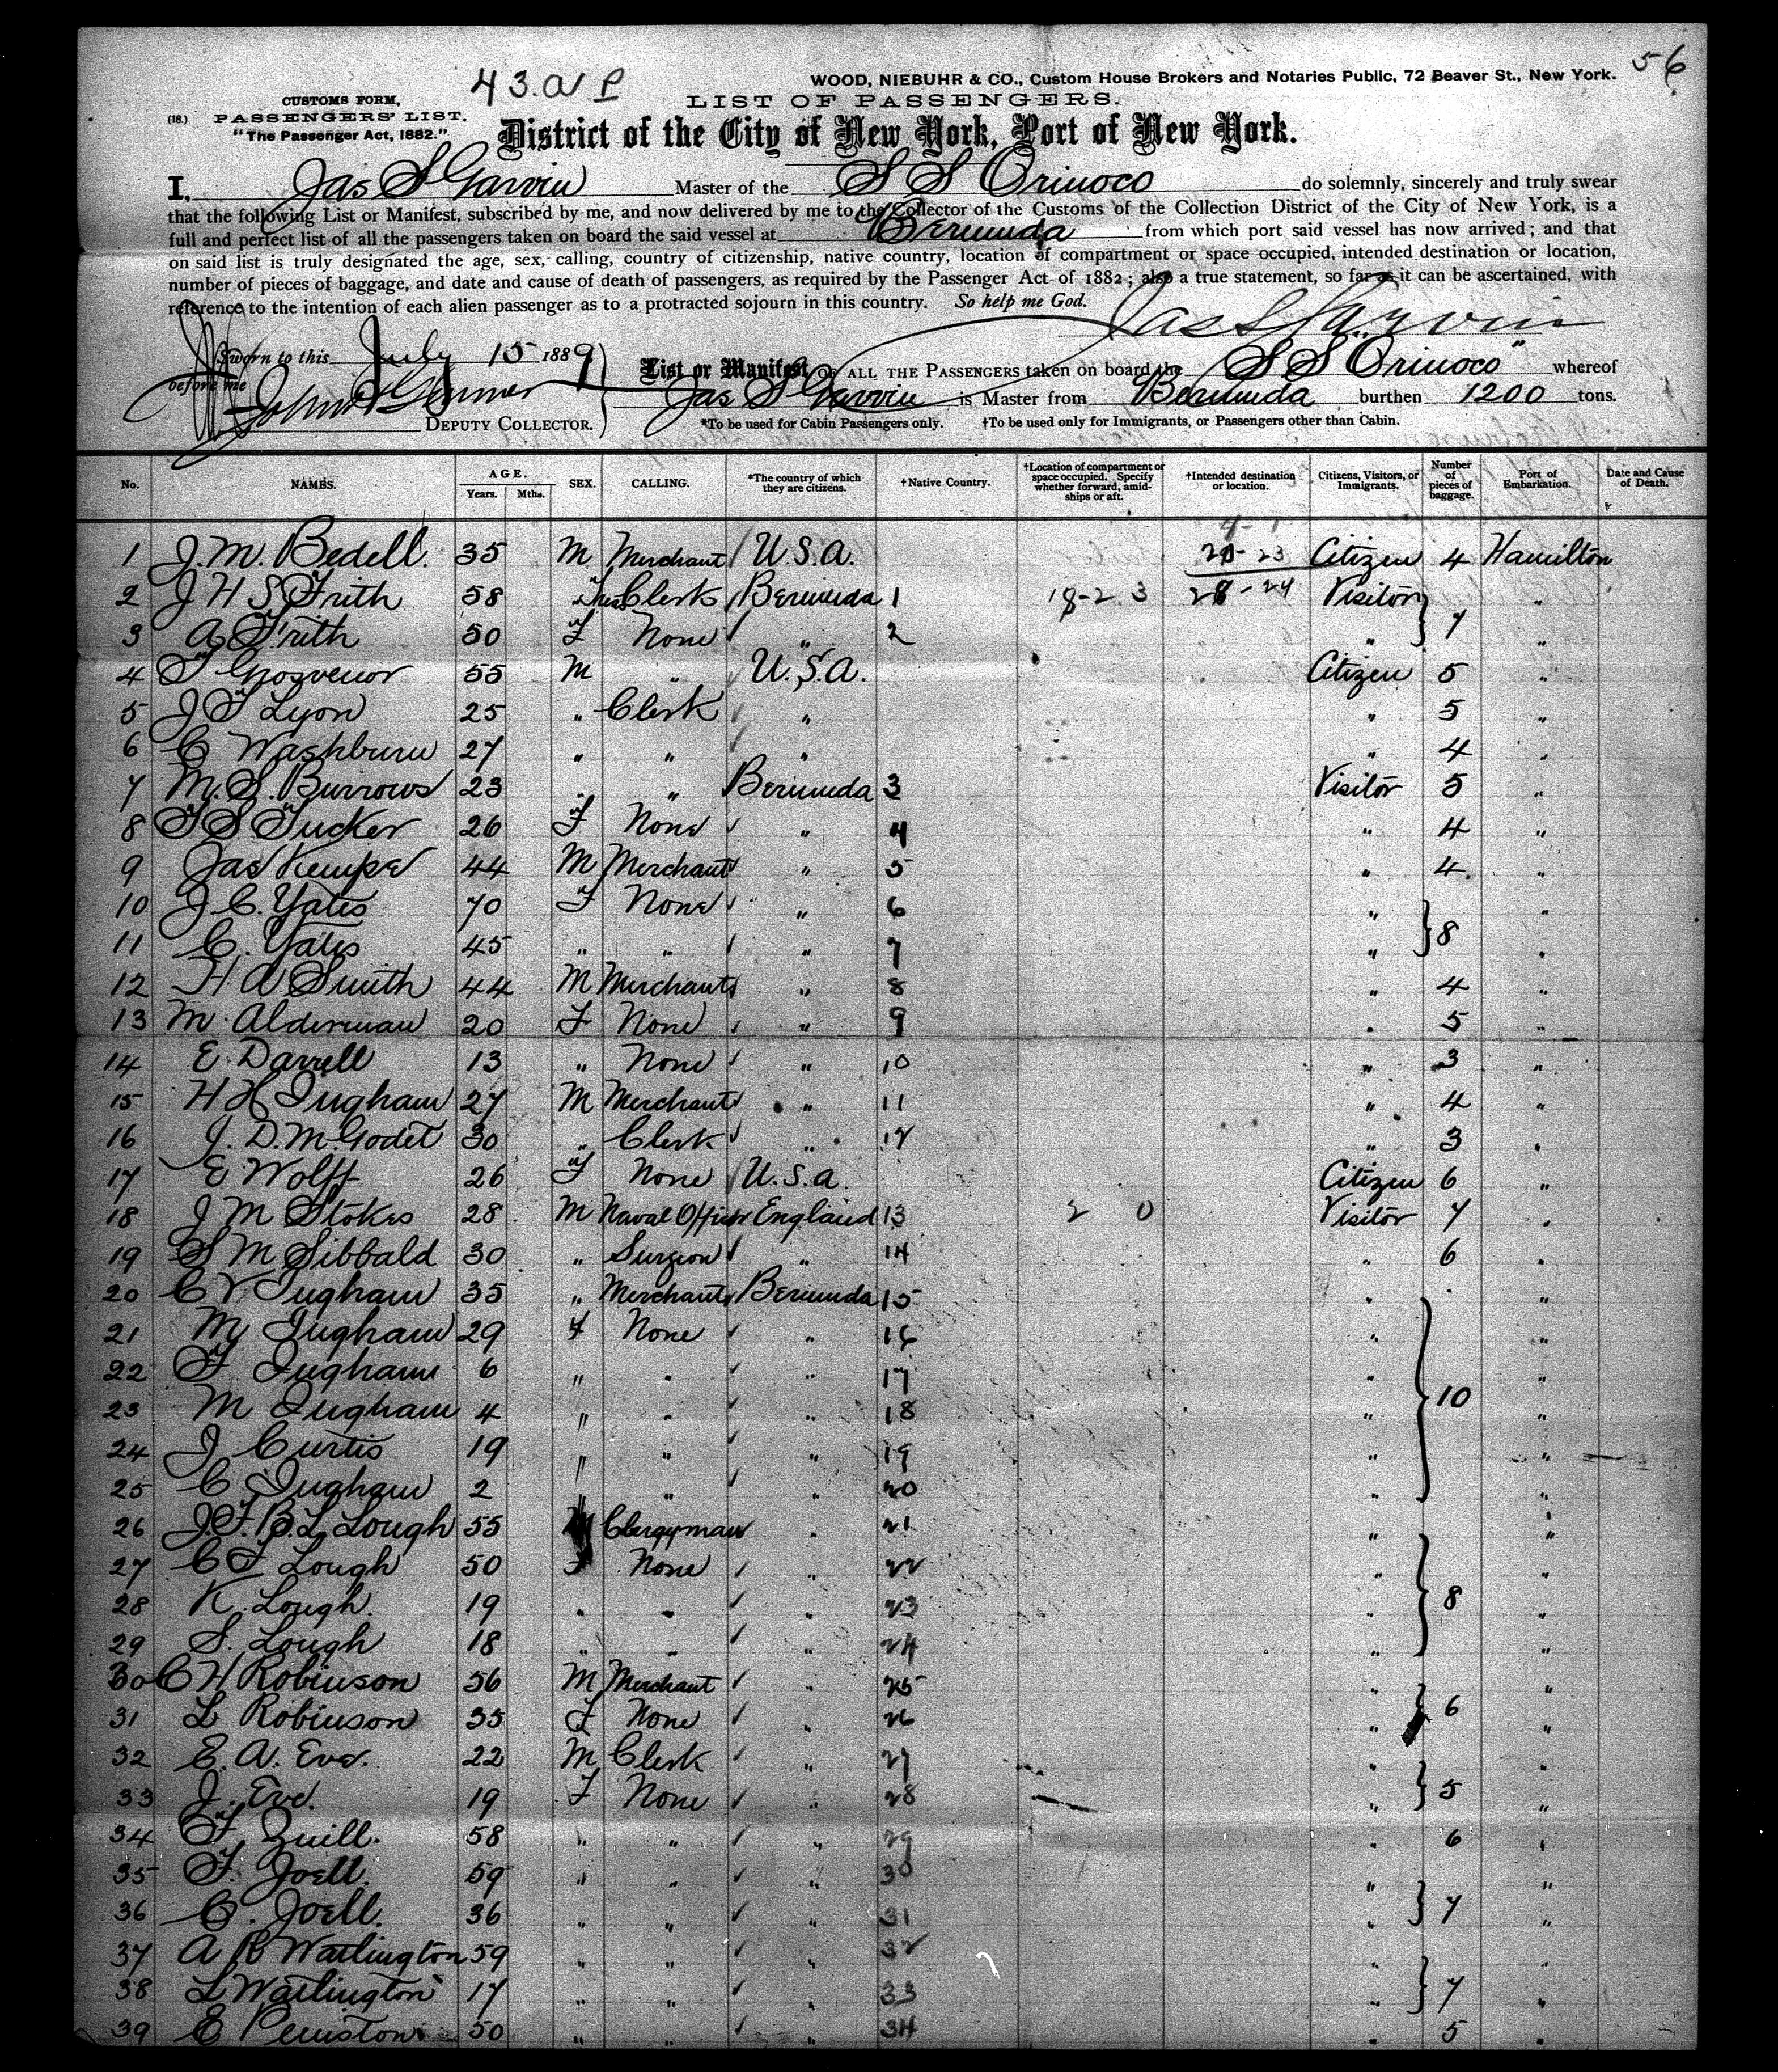 56
43.
WOOD, NIEBUHR & CO., Custom House Brokers and Notaries Public, 72 Beaver St., New York.
CUSTOMS FORM,
(18.) PASSENGERS' LIST.
"The Passenger Act, 1882."
LIST OF PASSENGERS.
District of the City of New York, Port of New York.
I, Jas S Garvin Master of the S S Orinoco do solemnly, sincerely and truly swear
that the following List or Manifest, subscribed by me, and now delivered by me to the Collector of the Customs of the Collection District of the City of New York, is a
full and perfect list of all the passengers taken on board the said vessel at Bermuda from which port said vessel has now arrived; and that
on said list is truly designated the age, sex, calling, country of citizenship, native country, location of compartment or space occupied, intended destination or location,
number of pieces of baggage, and date and cause of death of passengers, as required by the Passenger Act of 1882; also a true statement, so far as it can be ascertained, with
reference to the intention of each alien passenger as to a protracted sojourn in this country. So help me God.
Jas S Garvin
Sworn to this July 15 1889
before me
DEPUTY COLLECTOR.
List or Manifest OF ALL THE PASSENGERS taken on board the S S Orinoco" whereof
Jas S Garvin is Master from Bermuda burthen 1200 tons.
*To be used for Cabin Passengers only. †To be used only for Immigrants, or Passengers other than Cabin.
No. NAMES. AGE. Years. Mths. SEX. CALLING. *The country of which they are citizens. †Native Country. †Location of compartment or space occupied. Specify whether forward, amidships or aft. †Intended destination or location. Citizens, Visitors, or Immigrants. Number of pieces of baggage. Port of Embarkation. Date and Cause of Death.
4-1
1 J. M. Bedell. 35 M Merchant U.S.A. 23 Citizen 4 Hamilton
2 J H S Frith 58 Clerk Bermuda 1 18-2 3 28-24 Visitor } 7 "
3 A Frith 50 F None " 2 " "
4 T Grosvenor 55 M " U.S.A. Citizen 5 "
5 J T Lyon 25 " Clerk " " 5 "
6 C Washburn 27 " " " " 4 "
7 M. S. Burrows 23 " " Bermuda 3 Visitor 5 "
8 T S Tucker 26 F None " 4 " 4 "
9 Jas Kempe 44 M Merchant " 5 " 4 "
10 J C. Yates 70 F None " 6 " } 8 "
11 C. Yates 45 " " " 7 " "
12 H A Smith 44 M Merchant " 8 " 4 "
13 M Alderman 20 F None " 9 " 5 "
14 E Darrell 13 " None " 10 " 3 "
15 H H Ingham 27 M Merchant " 11 " 4 "
16 J. D. M. Godet 30 " Clerk " 12 " 3 "
17 E Wolff 26 F None U.S.A. Citizen 6 "
18 J M Stokes 28 M Naval Officer England 13 2 0 Visitor 7 "
19 S M Sibbald 30 " Surgeon " 14 " 6 "
20 C V Ingham 35 " Merchant Bermuda 15 " "
21 M Ingham 29 F None " 16 " "
22 F Ingham 6 " " " 17 " "
23 M Ingham 4 " " " 18 " } 10 "
24 J Curtis 19 " " " 19 " "
25 C Ingham 2 " " " 20 " "
26 J. F. B. L. Lough 55 M Clergyman " 21 " "
27 C F Lough 50 F None " 22 " "
28 K. Lough 19 " " " 23 " } 8 "
29 S. Lough 18 " " " 24 " "
30 C H Robinson 56 M Merchant " 25 " } 6 "
31 L Robinson 35 F None " 26 " "
32 E. A. Eve. 22 M Clerk " 27 " } 5 "
33 J. Eve. 19 F None " 28 " "
34 F Zuill. 58 " " " 29 " 6 "
35 F. Joell. 59 " " " 30 " } 7 "
36 C. Joell. 36 " " " 31 " "
37 A B Watlington 59 " " " 32 " } 7 "
38 L Watlington 17 " " " 33 " "
39 E Peniston 50 " " " 34 " 5 "